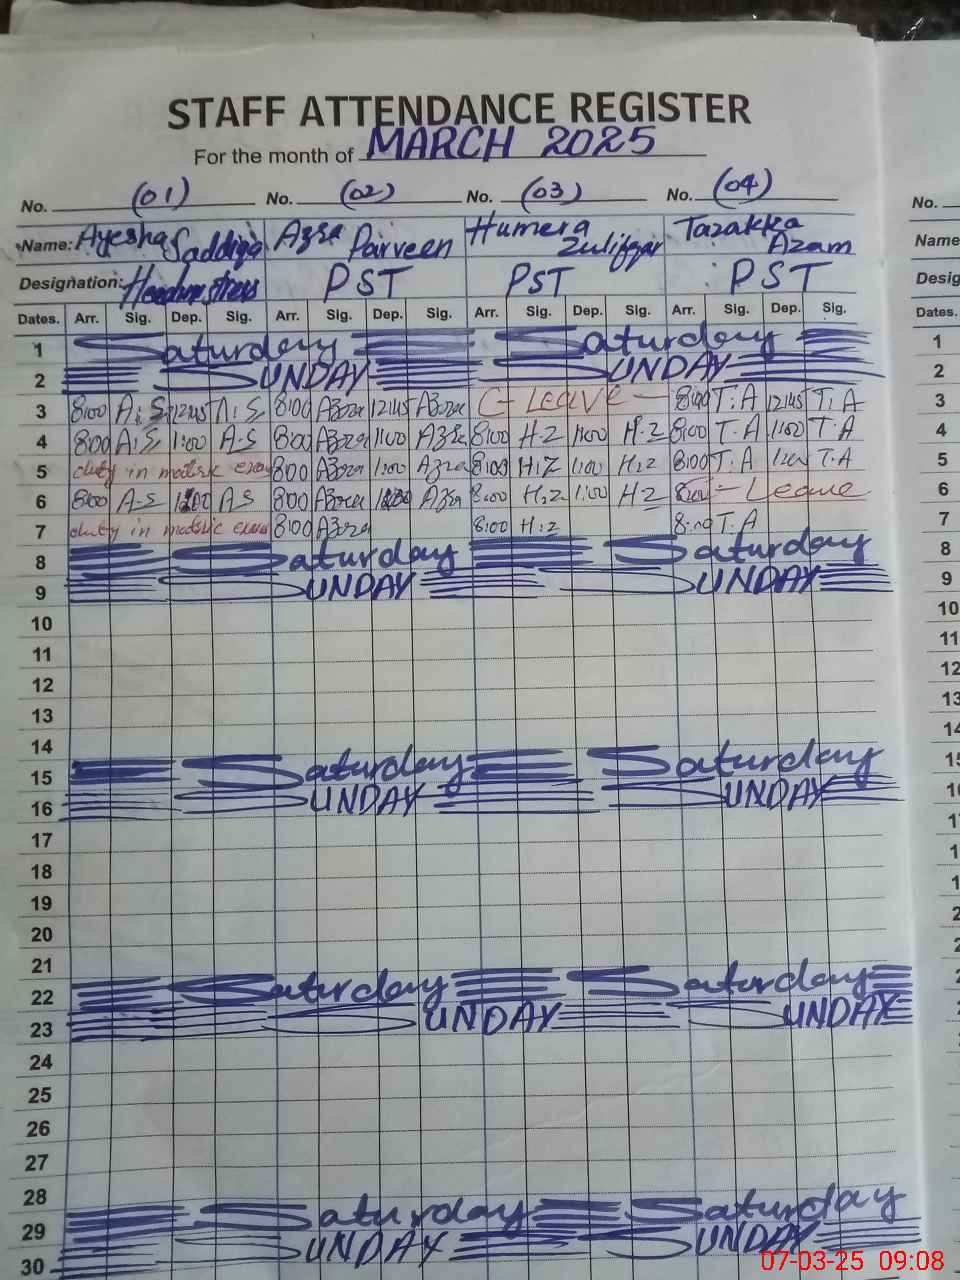 STAFF ATTENDANCE REGISTER
For the month of MARCH 2025
No. (01) No. (02) No. (03) No. (04) No.
Name: Ayesha Saddiqa Azra Parveen Humera Zulifqar Tazakka Azam Name
Designation: Headmistress PST PST PST Desig
Dates. Arr. Sig. Dep. Sig. Arr. Sig. Dep. Sig. Arr. Sig. Dep. Sig. Arr. Sig. Dep. Sig. Dates.
1 Saturday Saturday 1
2 SUNDAY SUNDAY 2
3 8:00 A:S 12:45 A:S 8:00 Azra 12:45 Azra C- Leave - 8:00 T:A 12:45 T:A 3
4 8:00 A:S 1:00 A-S 8:00 Azra 1:00 Azra 8:00 H-Z 1:00 H-Z 8:00 T-A 1:00 T-A 4
5 duty in matric exam 8:00 Azra 1:00 Azra 8:00 H:Z 1:00 H:Z 8:00 T:A 1:00 T-A 5
6 8:00 A-S 1:00 A S 8:00 Azra Azra 8:00 H:Z 1:00 HZ C- Leave 6
7 duty in matric exam 8:00 Azra 8:00 H:Z 8:00 T-A 7
8 Saturday Saturday 8
9 SUNDAY SUNDAY 9
10 10
11 11
12 12
13 13
14 14
15 Saturday Saturday 15
16 SUNDAY SUNDAY 16
17
18
19
20
21
22 Saturday Saturday
23 SUNDAY SUNDAY
24
25
26
27
28
29 Saturday Saturday
30 SUNDAY SUNDAY
07-03-25 09:08